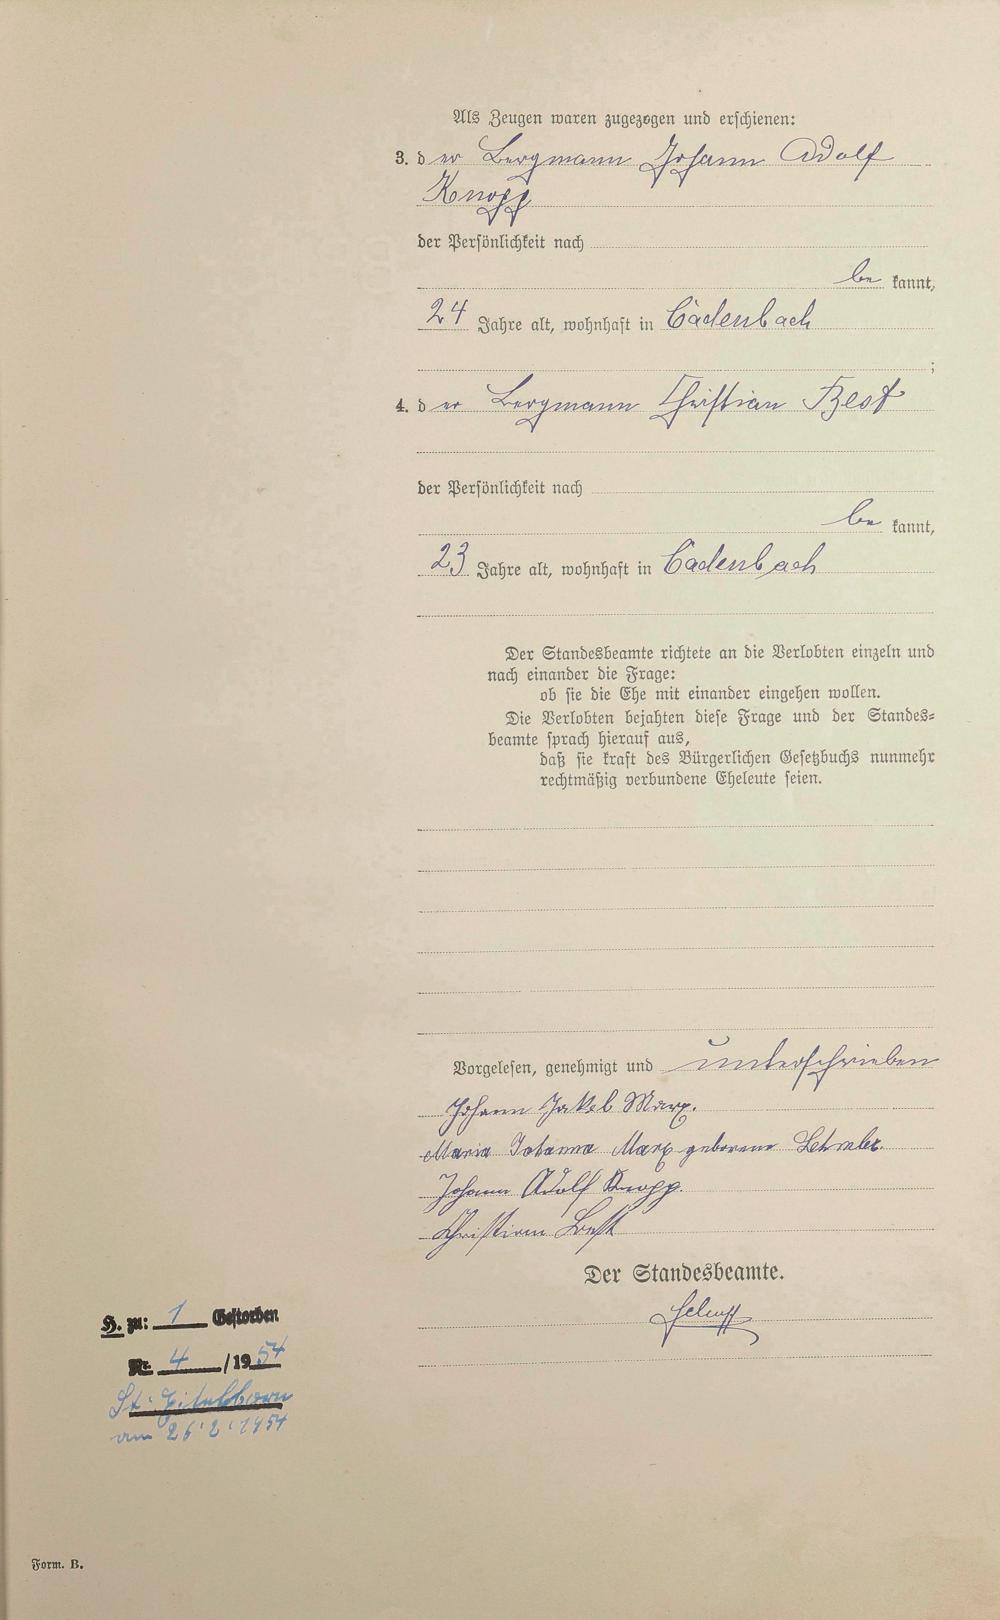 Als Zeugen waren zugezogen und erschienen:
3. der Bergmann Johann Adolf
Knopp
der Persönlichkeit nach
be kannt,
24 Jahre alt, wohnhaft in Cadenbach
;
4. der Bergmann Christian Best
der Persönlichkeit nach
be kannt,
23 Jahre alt, wohnhaft in Cadenbach
Der Standesbeamte richtete an die Verlobten einzeln und
nach einander die Frage:
ob sie die Ehe mit einander eingehen wollen.
Die Verlobten bejahten diese Frage und der Standes=
beamte sprach hierauf aus,
daß sie kraft des Bürgerlichen Gesetzbuchs nunmehr
rechtmäßig verbundene Eheleute seien.
Vorgelesen, genehmigt und unterschrieben
Johann Jakob Marx.
Maria Johanna Marx geborene
Johann Adolf Knopp.
Christian Best
Der Standesbeamte.
H. zu: 1 Gestorben
Nr. 4 /1954
St.
am 26.2.1954
Form. B.